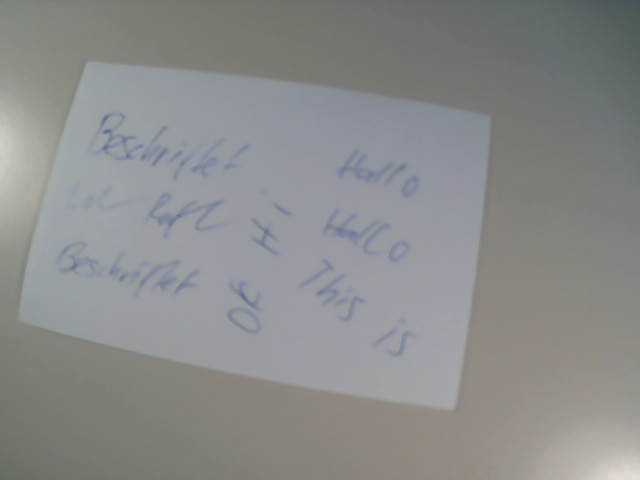 Beschriftet
Hallo
LoL Rofl
Hi
Hallo
Beschriftet
OK
This is